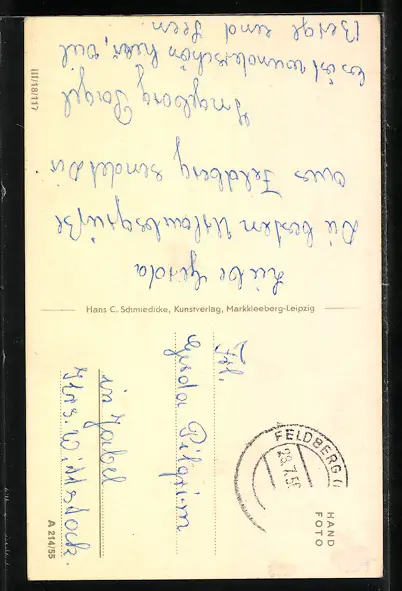 Liebe Gerda
Die besten Urlaubsgrüße
aus Feldberg sendet Dir
Ingeborg
es ist wunderschön hier, viel
Berge und Seen.
III/18/117
Hans C. Schmiedicke, Kunstverlag, Markkleeberg-Leipzig
Frl.
Gerda Pilgrim
in Zaatzke
Krs. Wittstock.
FELDBERG
28.7.56
HAND
FOTO
A 214/55